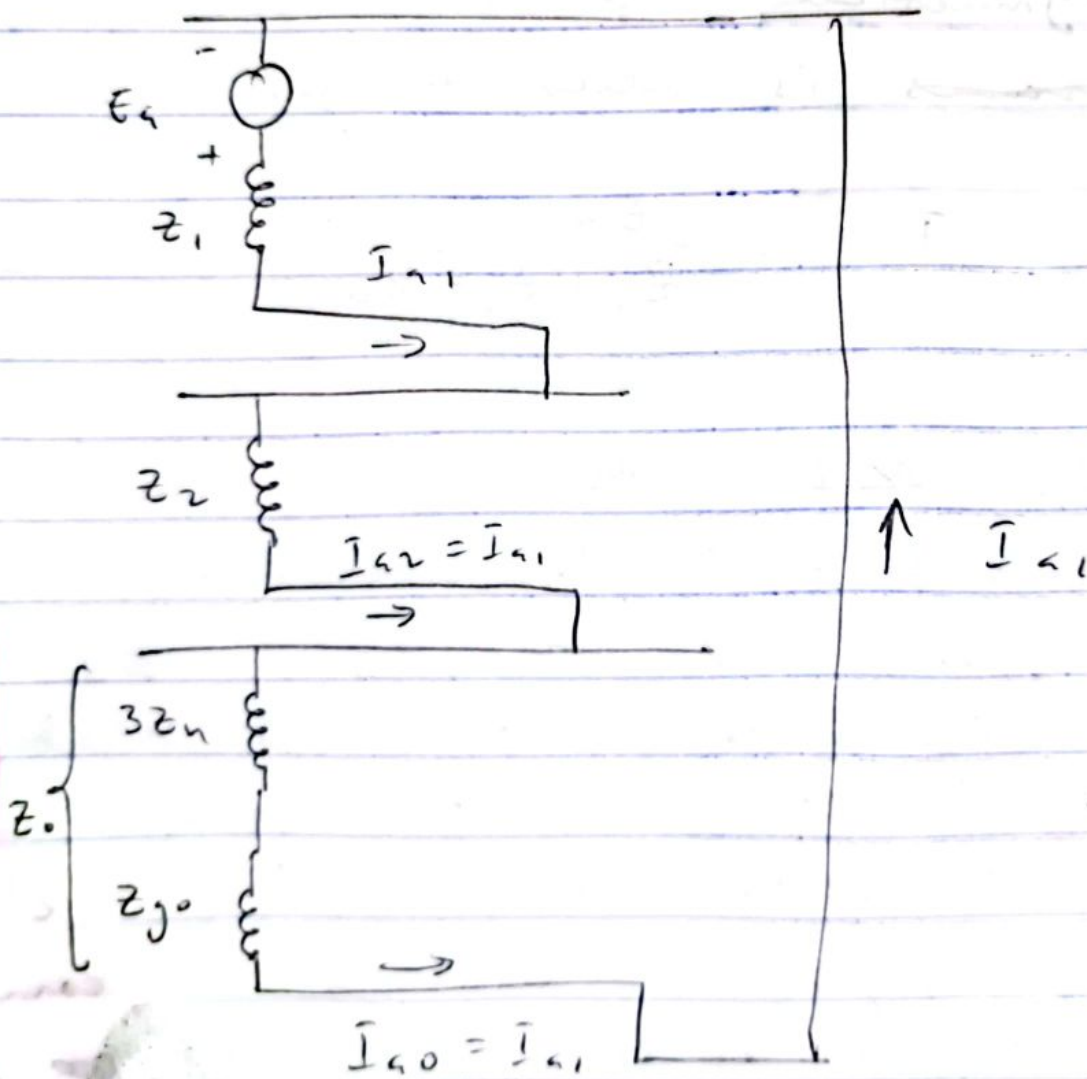 -
Ea
+
Z1
Ia1
→
Z2
Ia2 = Ia1
→
↑ Ia1
3Zn
Z0
Zg0
→
Ia0 = Ia1